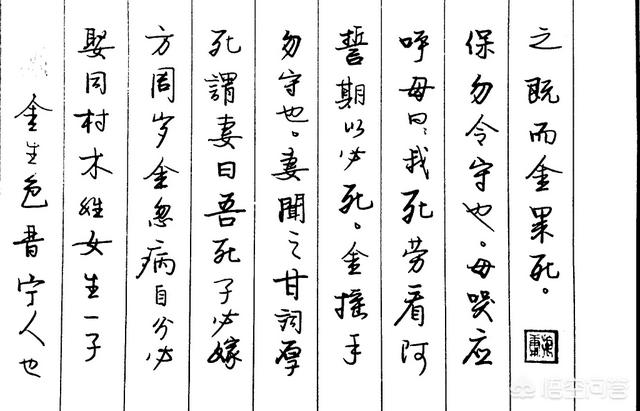 金生色晋宁人也
娶同村木姓女生一子
方周岁金忽病自分必
死謂妻曰吾死子必嫁
勿守也。妻聞之甘詞厚
誓期以必死。金摇手
呼母曰、我死劳看阿
保勿令守也。母哭应
之既而金果死。
悟空问答